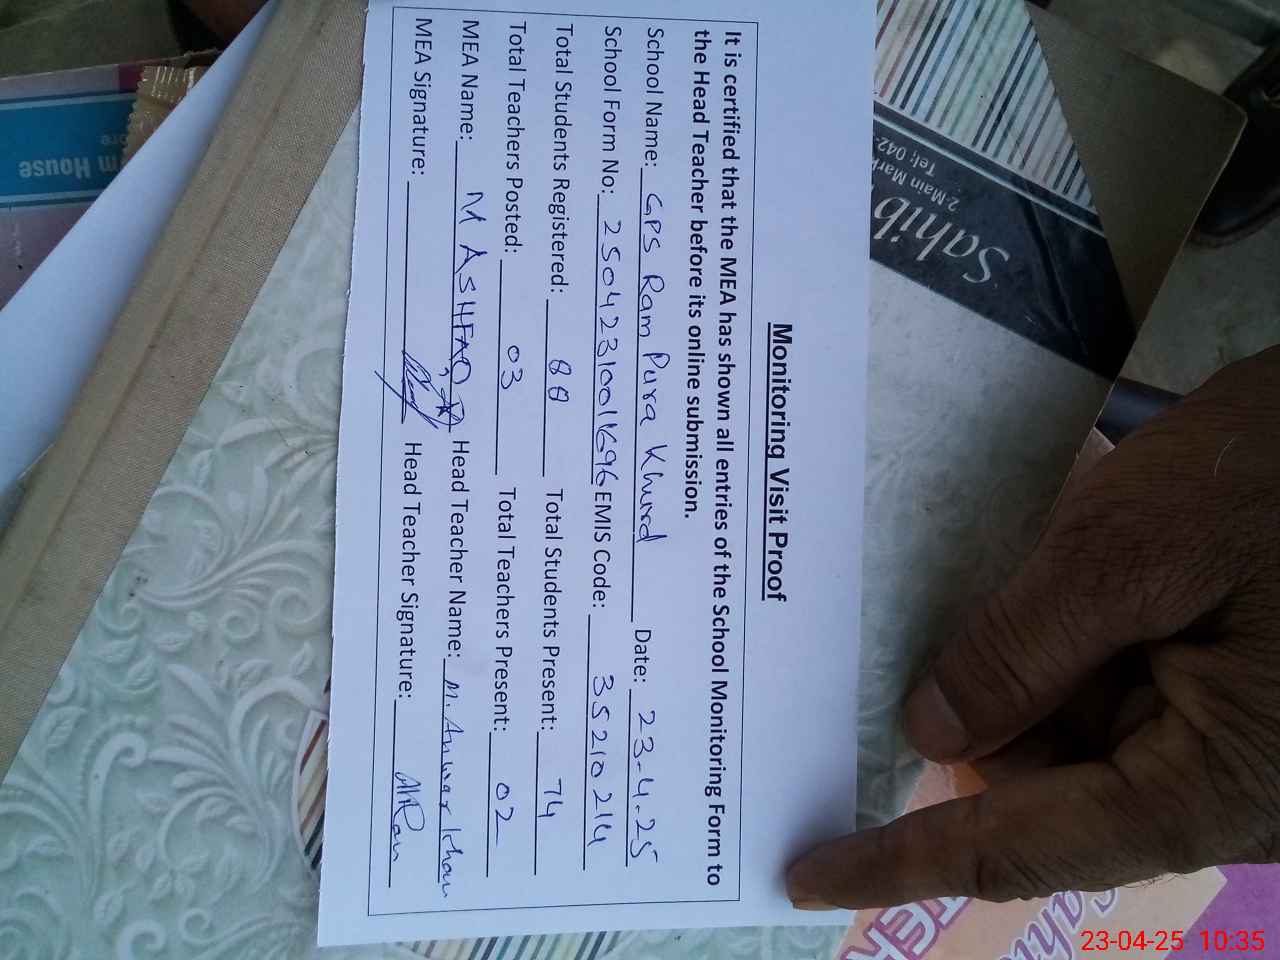 Monitoring Visit Proof
It is certified that the MEA has shown all entries of the School Monitoring Form to
the Head Teacher before its online submission.
School Name: GPS Ram Pura Khurd Date: 23-4-25
School Form No: 25042310011696 EMIS Code: 35210214
Total Students Registered: 88 Total Students Present: 74
Total Teachers Posted: 03 Total Teachers Present: 02
MEA Name: M ASHFAQ Head Teacher Name: M. Anwar Khan
MEA Signature: Head Teacher Signature:
Sahib
2-Main Mark
Tel: 042-
m House
ore
TER
23-04-25 10:35